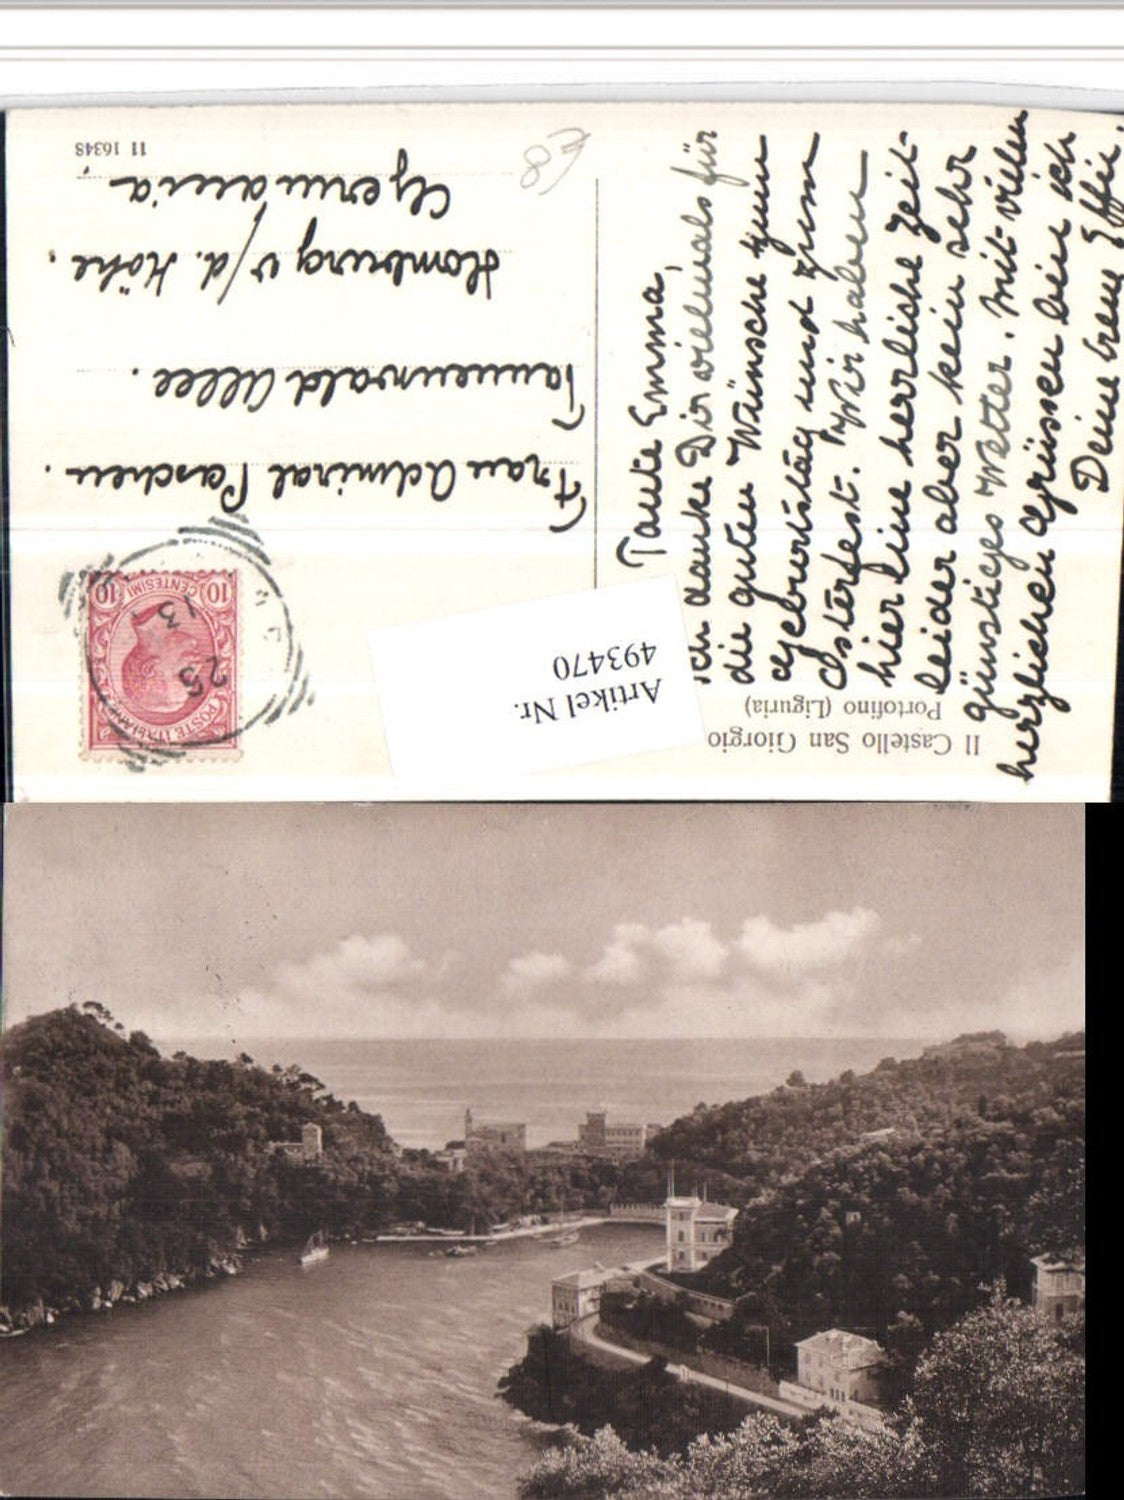 Il Castello San Giorgio
Portofino (Liguria)
Artikel Nr.
493470
Tante Emma,
ich danke Dir vielmals für
die guten Wünsche zum
Geburtstag und zum
Osterfest. Wir haben
hier eine herrliche Zeit
leider aber kein sehr
günstiges Wetter. Mit vielen
herzlichen Grüssen bin ich
Deine treue Effie.
POSTE ITALIANE
10 CENTESIMI 10
25
13
Frau Admiral Paschen.
Tannenwald Allee.
Homburg v/d. Höhe.
Germania
11 16348
€8